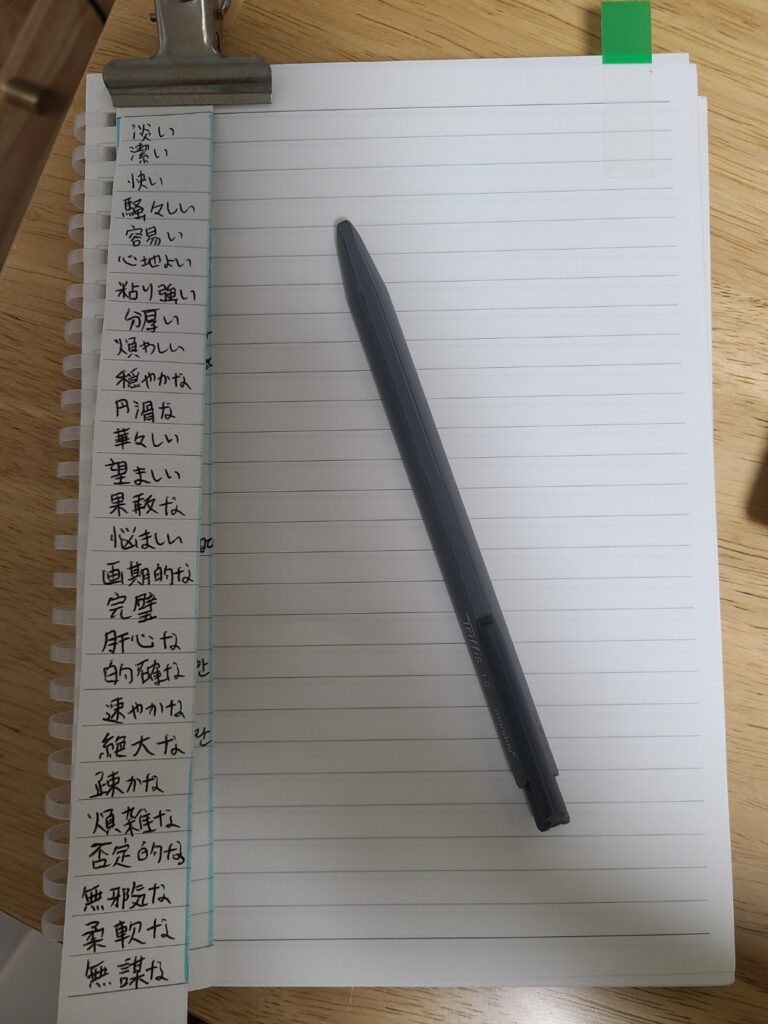 淡い
潔い
快い
騒々しい
容易い
心地よい
粘り強い
分厚い
煩わしい
穏やかな
円滑な
華々しい
望ましい
果敢な
悩ましい
画期的な
完璧
肝心な
的確な
만
速やかな
絶大な
란
疎かな
煩雑な
否定的な
無邪気な
柔軟な
無謀な
Triffis 1.0 monami